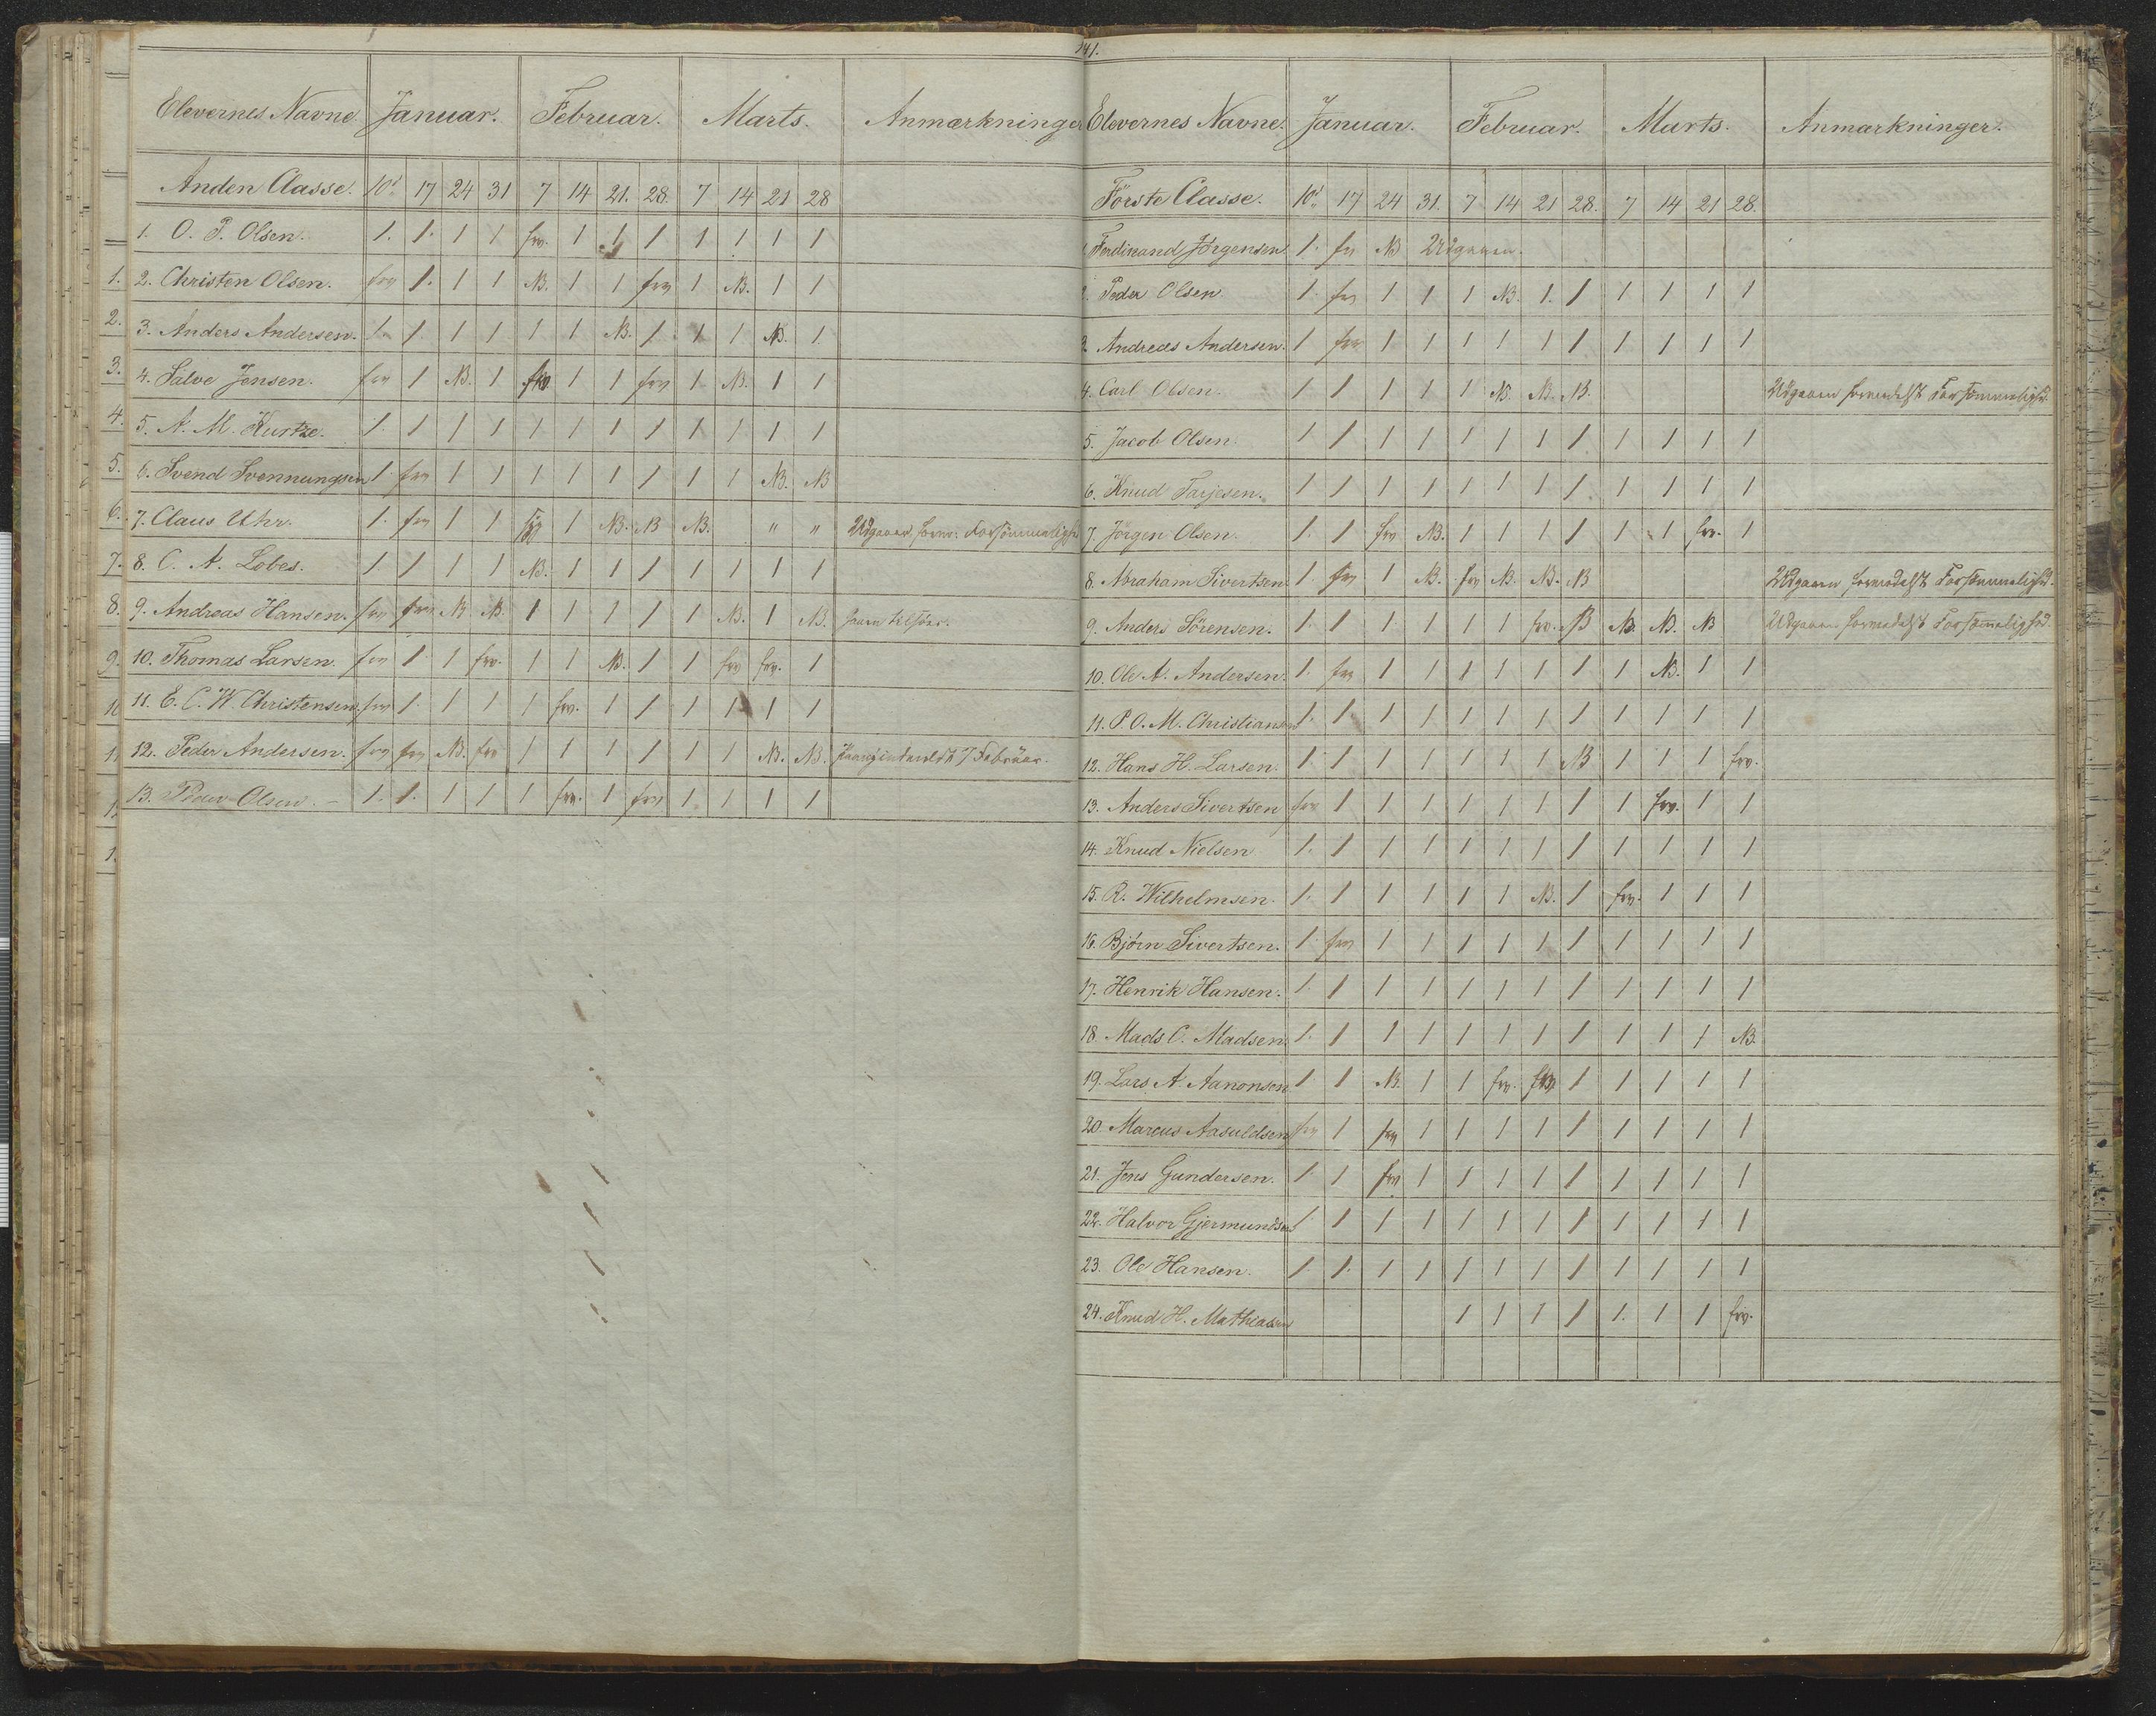 41.
Elevernes Navne Januar. Februar. Marts. Anmærkninger
Anden Classe. 10d 17 24 31 7 14 21. 28. 7 14 21 28
1. O. P. Olsen. 1. 1. 1 1 frv. 1 1 1 1 1 1 1
2. Christen Olsen. frv 1. 1 1 NB. 1 1 frv 1 NB. 1 1
3. Anders Andersen. 1. 1. 1 1 1 1 NB. 1 1 1 NB. 1
4. Salve Jensen. frv 1 NB. 1 frv 1 1 frv 1 NB. 1 1
5. A. M. Kurtze. 1. 1 1 1 1 1 1 1 1 1 1 1
6. Svend Svennungsen 1 frv 1 1 1 1 1 1 1 1 NB. NB
7. Claus Uhr. 1. frv 1 1 1 NB. NB NB. " " Udgaaet form. Forsömmelighd
8. C. A. Lobes. 1 1 1 1 NB. 1 1 1 1 1 1 1
9. Andreas Hansen. frv frv NB NB. 1 1 1 1 1 NB. 1 NB. faren tilsöes.
10. Thomas Larsen. frv 1. 1 frv. 1 1 NB. 1 1 frv frv. 1
11. E. C. W. Christensen. frv 1. 1 1 1 frv. 1 1 1 1 1 1
12. Peder Andersen. frv frv NB. frv 1 1 1 1 1 1 NB. NB. 7 Februar.
13. Peder Olsen. – 1. 1. 1 1 1 frv. 1 frv 1 1 1 1
1.
2.
3.
4.
5.
6.
7.
8.
9.
Elevernes Navne. Januar. Februar. Marts. Anmærkninger.
Förste Classe. 10d 17 24 31. 7 14 21 28. 7 14 21 28.
Ferdinand Jörgensen 1. frv NB Udgaaen.
Peder Olsen 1. frv 1 1 1 NB. 1. 1 1 1 1 1
3. Andreas Andersen. 1 frv 1 1 1 1 1 1 1 1 1 1
4. Carl Olsen. 1 1 1 1 1 NB. NB. NB. Udgaaen formedelst Forsömmelighd.
5. Jacob Olsen. 1 1 1 1 1 1 1 1 1 1 1 1
6. Knud Tarjesen. 1 1 1 1 1 1 1 1 1 1 1 1
7. Jörgen Olsen. 1. 1 frv NB. 1 1 1 1 1 1 frv. 1
8. Abraham Sivertsen. 1. frv 1 NB. frv NB. NB. NB Udgaaen formedelst Forsömmelighd.
9. Anders Sörensen. 1. 1 1 1 1 1 frv. NB NB. NB. NB Udgaaen formedelst Forsömmelighd.
10. Ole A. Andersen. 1. frv 1 1 1 1 1 1 1 NB. 1 1
11. P. O. M. Christiansen 1. 1 1 1 1 1 1 1 1 1 1 1
12. Hans H. Larsen. 1. 1 1 1 1 1 1 NB 1 1 1 frv.
13. Anders Sivertsen frv 1 1 1 1 1 1 1 1 frv. 1 1
14. Knud Nielsen 1. 1 1 1 1 1 1 1 1 1 1 1
15. R. Wilhelmsen. 1. 1 1 1 1 1 NB. 1 frv. 1 1 1
16. Björn Sivertsen. 1. frv 1 1 1 1 1 1 1 1 1 1
17. Henrik Hansen. 1. 1 1 1 1 1 1 1 1 1 1 1
18. Mads C. Madsen. 1. 1 1 1 1 1 1 1 1 1 1 NB.
19. Lars A. Aanonsen. 1 1 NB. 1 1 frv. frv 1 1 1 1 1
20. Marcus Aasuldsen frv 1 frv 1 1 1 1 1 1 1 1 1
21. Jens Gundersen. 1. 1 frv 1 1 1 1 1 1 1 1 1
22. Halvor Gjermundsen 1. 1 1 1 1 1 1 1 1 1 1 1
23. Ole Hansen. 1 1. 1 1 1 1 1 1 1 1 1 1
24. Knud H. Mathiasen 1 1 1 1 1. 1 1 frv.